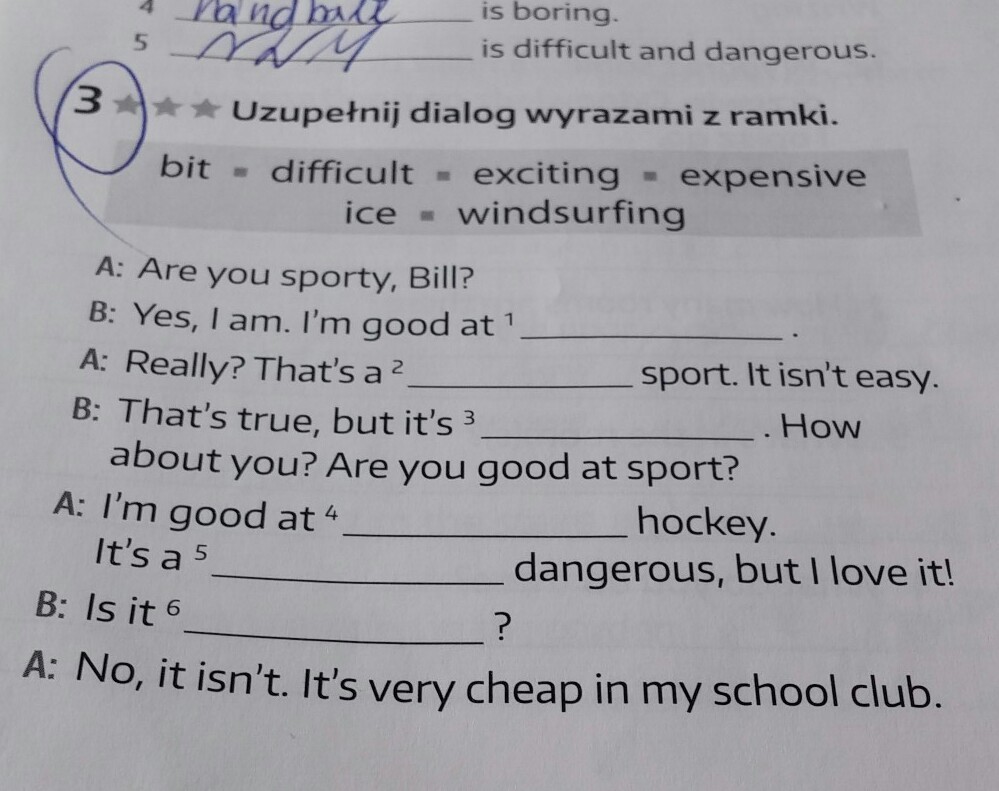 4 handball is boring.
5 is difficult and dangerous.
3 ★★★ Uzupełnij dialog wyrazami z ramki.
bit ▪ difficult ▪ exciting ▪ expensive
ice ▪ windsurfing
A: Are you sporty, Bill?
B: Yes, I am. I'm good at ¹ ____________ .
A: Really? That's a ² ____________ sport. It isn't easy.
B: That's true, but it's ³ ____________ . How
about you? Are you good at sport?
A: I'm good at ⁴ ____________ hockey.
It's a ⁵ ____________ dangerous, but I love it!
B: Is it ⁶ ____________ ?
A: No, it isn't. It's very cheap in my school club.